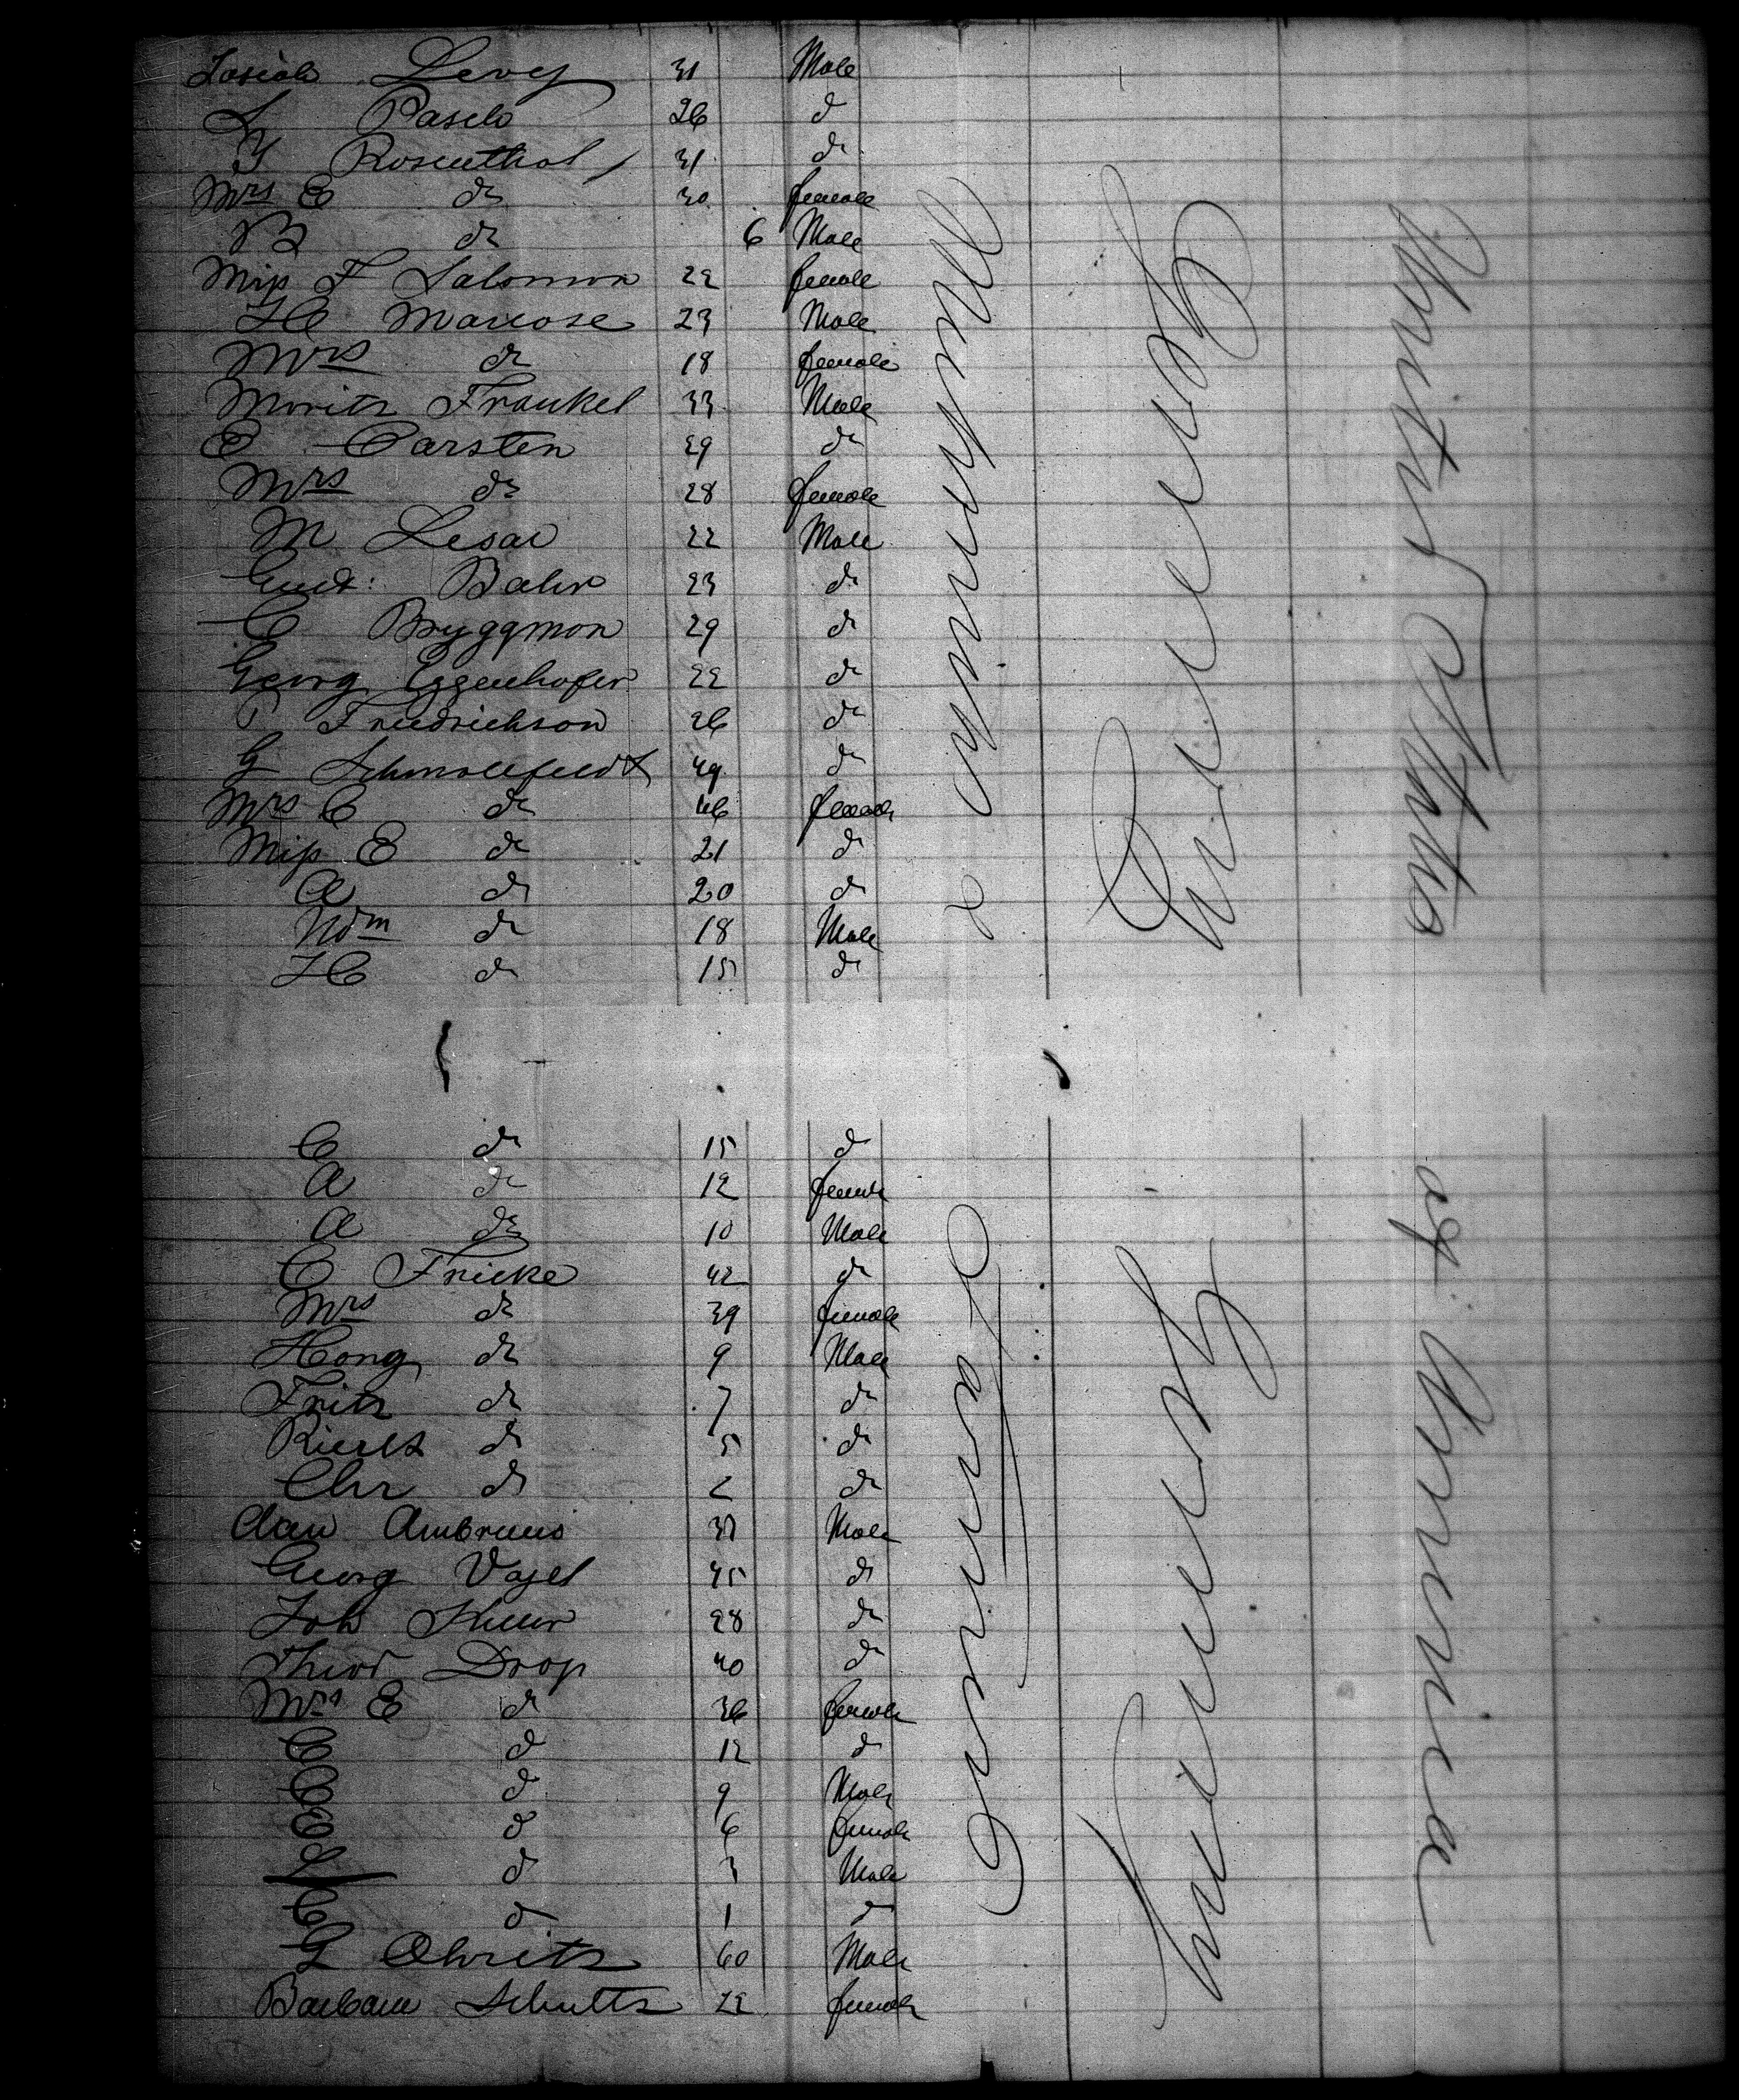 Josiah Levy 31 Male
L Pasch 26 do
Y Rosenthal 31 do
Mrs E do 30 female
B do 6 Male
Miss F Salomon 22 female
H Marcose 23 Male
Mrs do 18 female
Moritz Frankel 33 Male
C Carsten 29 do
Mrs do 28 female
M Lesar 22 Male
Bahr 23 do
C Bryggmon 29 do
Georg Eggenhofer 22 do
F Friedrichson 26 do
G Schmollfeldt 49 do
Mrs C do 46 female
Miss E do 21 do
A do 20 do
Wm do 18 Male
H do 15 do
C do 15 do
A do 12 female
A do 10 Male
C Fricke 42 do
Mrs do 39 female
Hong do 9 Male
Fritz do 7 do
do 5 do
Chr do 2 do
Ambruus Male
Georg Vogel 45 do
Joh 28 do
Theod Drop 40 do
Mrs E do 36 female
C do 12 do
C do 9 Male
E do 6 female
L do 3 Male
C do 1 do
G Ohritz 60 Male
Barbara Schultz 22 female
Germany
United States
of America